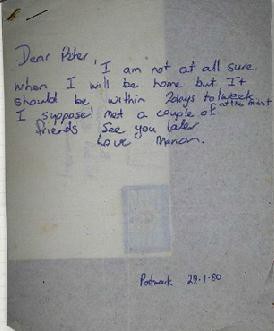 Dear Peter,
I am not at all sure
when I will be home but It
should be within 2days to 1week
at the most
I suppose met a couple of
friends See you later
Love Marion.
Postmark 29-1-80